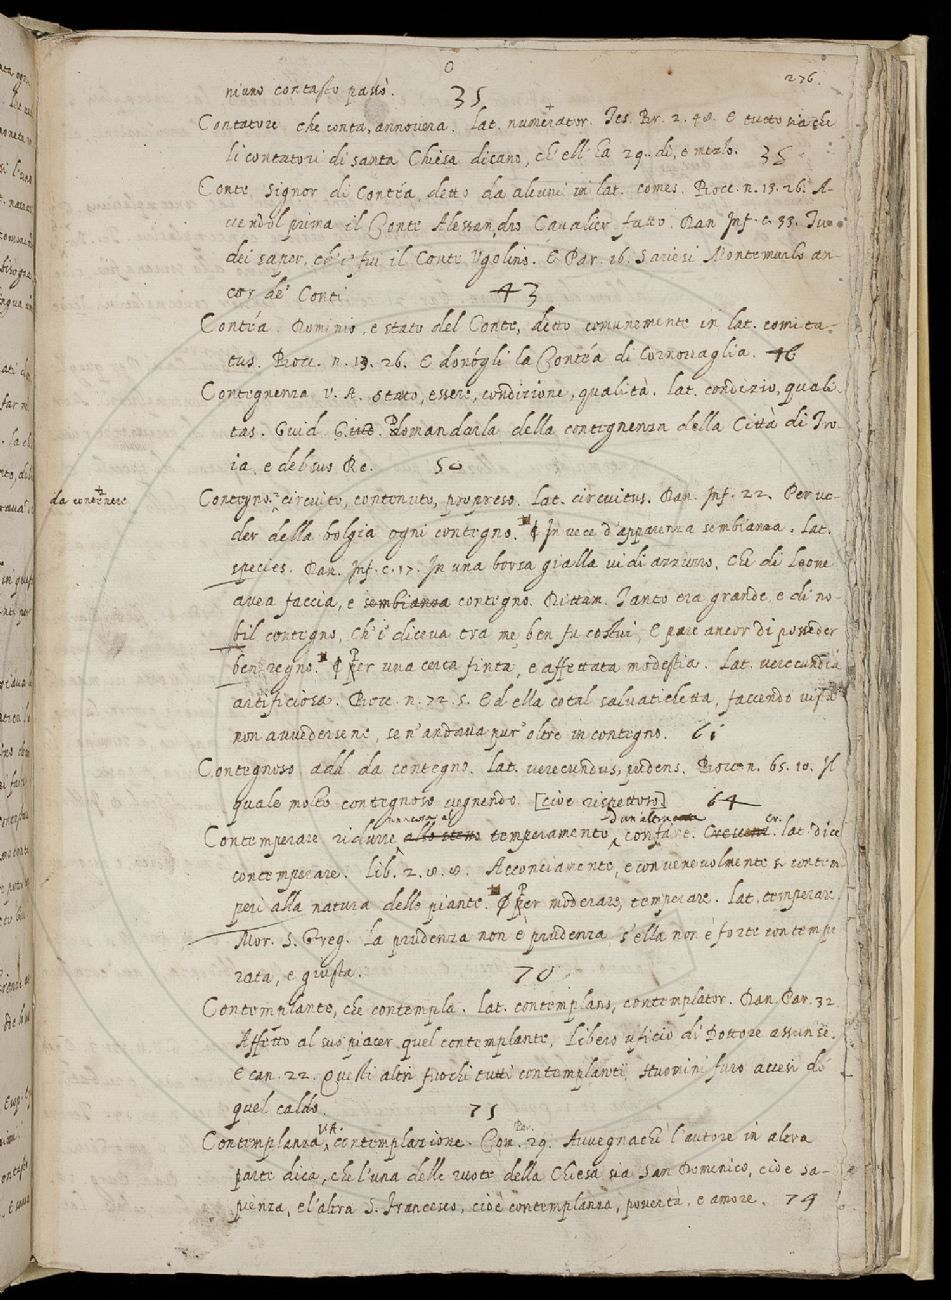 276.
niuno contasto passò. 35
Contatore che conta, annovera. Lat. numerator. Tes. Br. 2. 48. E tutto sia che
li contatori di santa Chiesa dicano, ch'ell'ha 29. dì, e mezo. 35
Conte. Signor di Contéa, detto da alcuni in lat. comes. Bocc. n. 13. 26. A-
vendol prima il Conte Alessandro Cavalier fatto. Dan Inf. c. 33. Tu
dei saper, ch'i' fui il Conte Ugolino. E Par. 16. Sariesi Montemurlo an-
cor de' Conti. 43
Contéa. Dominio, e stato del Conte, detto comunemente in lat. comita-
tus. Bocc. n. 13. 26. E donógli la Contéa di Cornovaglia. 46
Contegnenza v. A. stato, essere, condizione, qualità. lat. conditio, quali-
tas. Guid. G. Domandarla della contegnenza della Città di Tro-
ia, e del suo Re. 50
da contenere
Contegno. circuito, contenuto, propreso. Lat. circuitus. Dan. Inf. 22. Per ve-
der della bolgia ogni contegno. ¶ In vece d'apparenza sembianza. Lat.
species. Dan. Inf. c. 17. In una borsa gialla vidi azzurro, Che di Leone
avea faccia, e sembianza contegno. Dittam. Tanto era grande, e di no-
bil contegno, Ch'i' diceva tra me, ben fu costui, E pare ancor di posseder
ben regno. ¶ Per una certa finta, e affettata modestia. Lat. verecundia
artificiosa. Bocc. n. 72. 5. Ed ella cotal salvatichetta, facendo vista
non avvedersene, se n'andava pur oltre in contegno. 61
Contegnoso add. da contegno. Lat. verecundus, pudens. Bocc. n. 65. 10. Il
quale molto contegnoso vegnendo. [cioè rispettoso] 64
Contemperare ridurre allo stesso temperamento, confare. Crescent. Cr. lat. dice
contemperare. Lib. 2. 8. 8. Acconciamente, e convenevolmente si contem-
peri alla natura delle piante. ¶ Per moderare, temperare. Lat. temperare.
Mor. S. Greg. La prudenza non è prudenza s'ella non è forte contempe-
rata, e giusta. 70
Contemplante, che contempla. Lat. contemplans, contemplator. Dan. Par. 32.
Affetto al suo piacer quel contemplante, Libero uficio di Dottore assunse.
E can. 22. Questi altri fuochi tutti contemplanti, Huomini furo accesi di
quel caldo. 71
Contemplanza V.A. contemplazione. Com. Par. 29. Avvegnachè l'autore in altra
parte dica, che l'una delle ruote della Chiesa sia San Domenico, cioè sa-
pienza, e l'altra S. Francesco, cioè contemplanza, povertà, e amore. 74